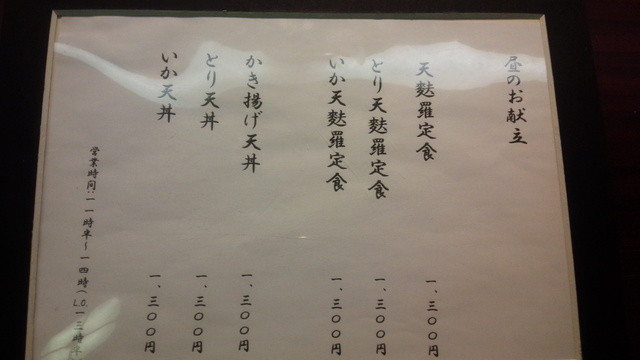 昼のお献立
天麩羅定食 一、三〇〇円
とり天麩羅定食 一、三〇〇円
いか天麩羅定食 一、三〇〇円
かき揚げ天丼 一、三〇〇円
とり天丼 一、三〇〇円
いか天丼 一、三〇〇円
営業時間:一一時半~一四時(L.O.一三時半